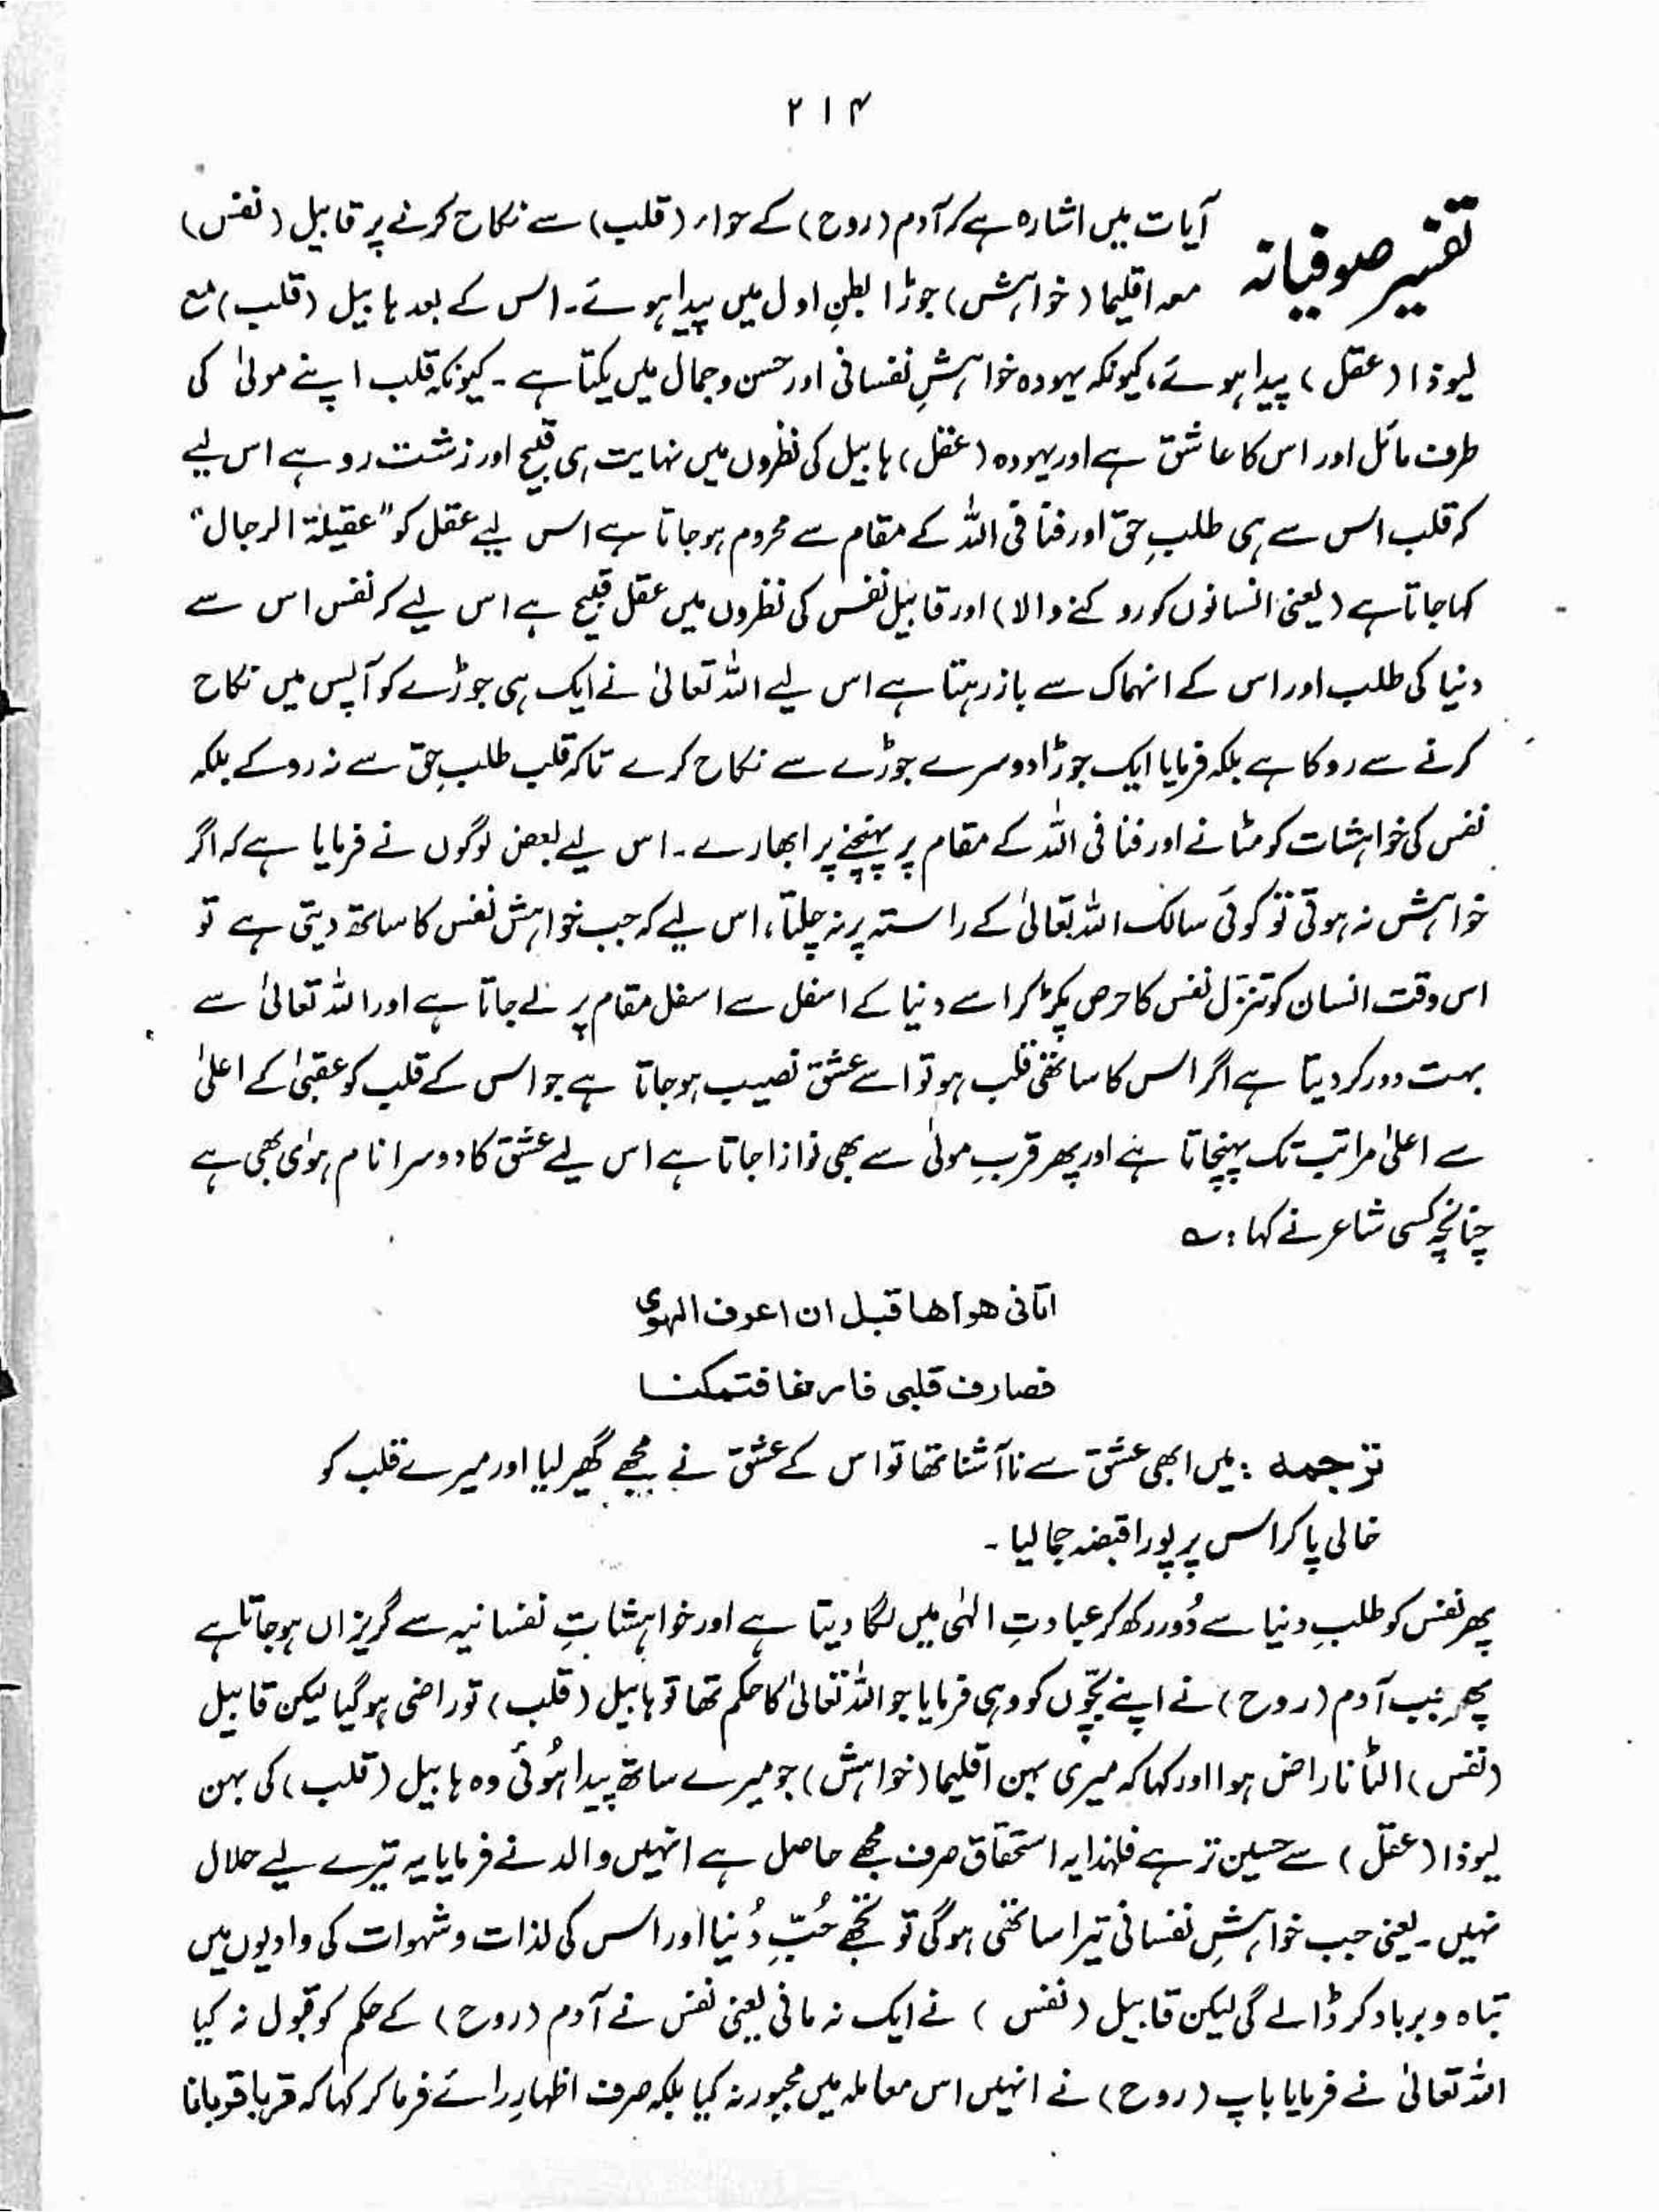 ۲۱۴
تفسیر صوفیانہ
آیات میں اشارہ ہے کہ آدم (روح) کے حواء (قلب) سے نکاح کرنے پر قابیل (نفس)
معہ اقلیما (خواہش) جوڑا بطنِ اول میں پیدا ہوئے۔ اس کے بعد ہابیل (قلب) مع
لیوذا (عقل) پیدا ہوئے، کیونکہ یہودہ خواہشِ نفسانی اور حسن و جمال میں یکتا ہے۔ کیونکہ قلب اپنے مولیٰ کی
طرف مائل اور اس کا عاشق ہے اور یہودہ (عقل) ہابیل کی نظروں میں نہایت ہی قبیح اور زشت رو ہے اس لیے
کہ قلب اس سے ہی طلبِ حق اور فنا فی اللہ کے مقام سے محروم ہو جاتا ہے اس لیے عقل کو "عقیلۃ الرجال"
کہا جاتا ہے (یعنی انسانوں کو روکنے والا) اور قابیل نفس کی نظروں میں عقل قبیح ہے اس لیے کہ نفس اس سے
دنیا کی طلب اور اس کے انہماک سے باز رہتا ہے اس لیے اللہ تعالیٰ نے ایک ہی جوڑے کو آپس میں نکاح
کرنے سے روکا ہے بلکہ فرمایا ایک جوڑا دوسرے جوڑے سے نکاح کرے تاکہ قلب طلبِ حق سے نہ روکے بلکہ
نفس کی خواہشات کو مٹانے اور فنا فی اللہ کے مقام پر پہنچنے پر ابھارے۔ اس لیے بعض لوگوں نے فرمایا ہے کہ اگر
خواہش نہ ہوتی تو کوئی سالک اللہ تعالیٰ کے راستہ پر نہ چلتا، اس لیے کہ جب خواہش نفس کا ساتھ دیتی ہے تو
اس وقت انسان کو تنزل نفس کا حرص پکڑ کر اسے دنیا کے اسفل سے اسفل مقام پر لے جاتا ہے اور اللہ تعالیٰ سے
بہت دور کر دیتا ہے اگر اس کا ساتھی قلب ہو تو اسے عشق نصیب ہو جاتا ہے جو اس کے قلب کو عقبیٰ کے اعلیٰ
سے اعلیٰ مراتب تک پہنچاتا ہے اور پھر قربِ مولیٰ سے بھی نوازا جاتا ہے اس لیے عشق کا دوسرا نام ہویٰ بھی ہے
چنانچہ کسی شاعر نے کہا : ؎
اتانی ھواھا قبل ان اعرف الھوی
فصادف قلبی فارغا فتمکنا
ترجمہ : میں ابھی عشق سے نا آشنا تھا تو اس کے عشق نے مجھے گھیر لیا اور میرے قلب کو
خالی پا کر اس پر پورا قبضہ جما لیا۔
پھر نفس کو طلبِ دنیا سے دُور رکھ کر عبادتِ الٰہی میں لگا دیتا ہے اور خواہشاتِ نفسانیہ سے گریزاں ہو جاتا ہے
پھر جب آدم (روح) نے اپنے بچّوں کو وہی فرمایا جو اللہ تعالیٰ کا حکم تھا تو ہابیل (قلب) تو راضی ہو گیا لیکن قابیل
(نفس) الٹا ناراض ہوا اور کہا کہ میری بہن اقلیما (خواہش) جو میرے ساتھ پیدا ہُوئی وہ ہابیل (قلب) کی بہن
لیوذا (عقل) سے حسین تر ہے فلہٰذا یہ استحقاق صرف مجھے حاصل ہے انہیں والد نے فرمایا یہ تیرے لیے حلال
نہیں۔ یعنی جب خواہشِ نفسانی تیرا ساتھی ہو گی تو تجھے حُبِّ دُنیا اور اس کی لذات و شہوات کی وادیوں میں
تباہ و برباد کر ڈالے گی لیکن قابیل (نفس) نے ایک نہ مانی یعنی نفس نے آدم (روح) کے حکم کو قبول نہ کیا
اللہ تعالیٰ نے فرمایا باپ (روح) نے انہیں اس معاملہ میں مجبور نہ کیا بلکہ صرف اظہارِ رائے فرما کر کہا کہ قربا قربانا